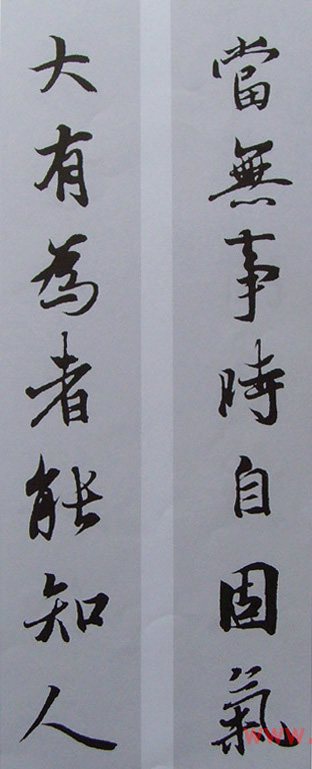 當無事時自固氣
大有為者能知人
www.